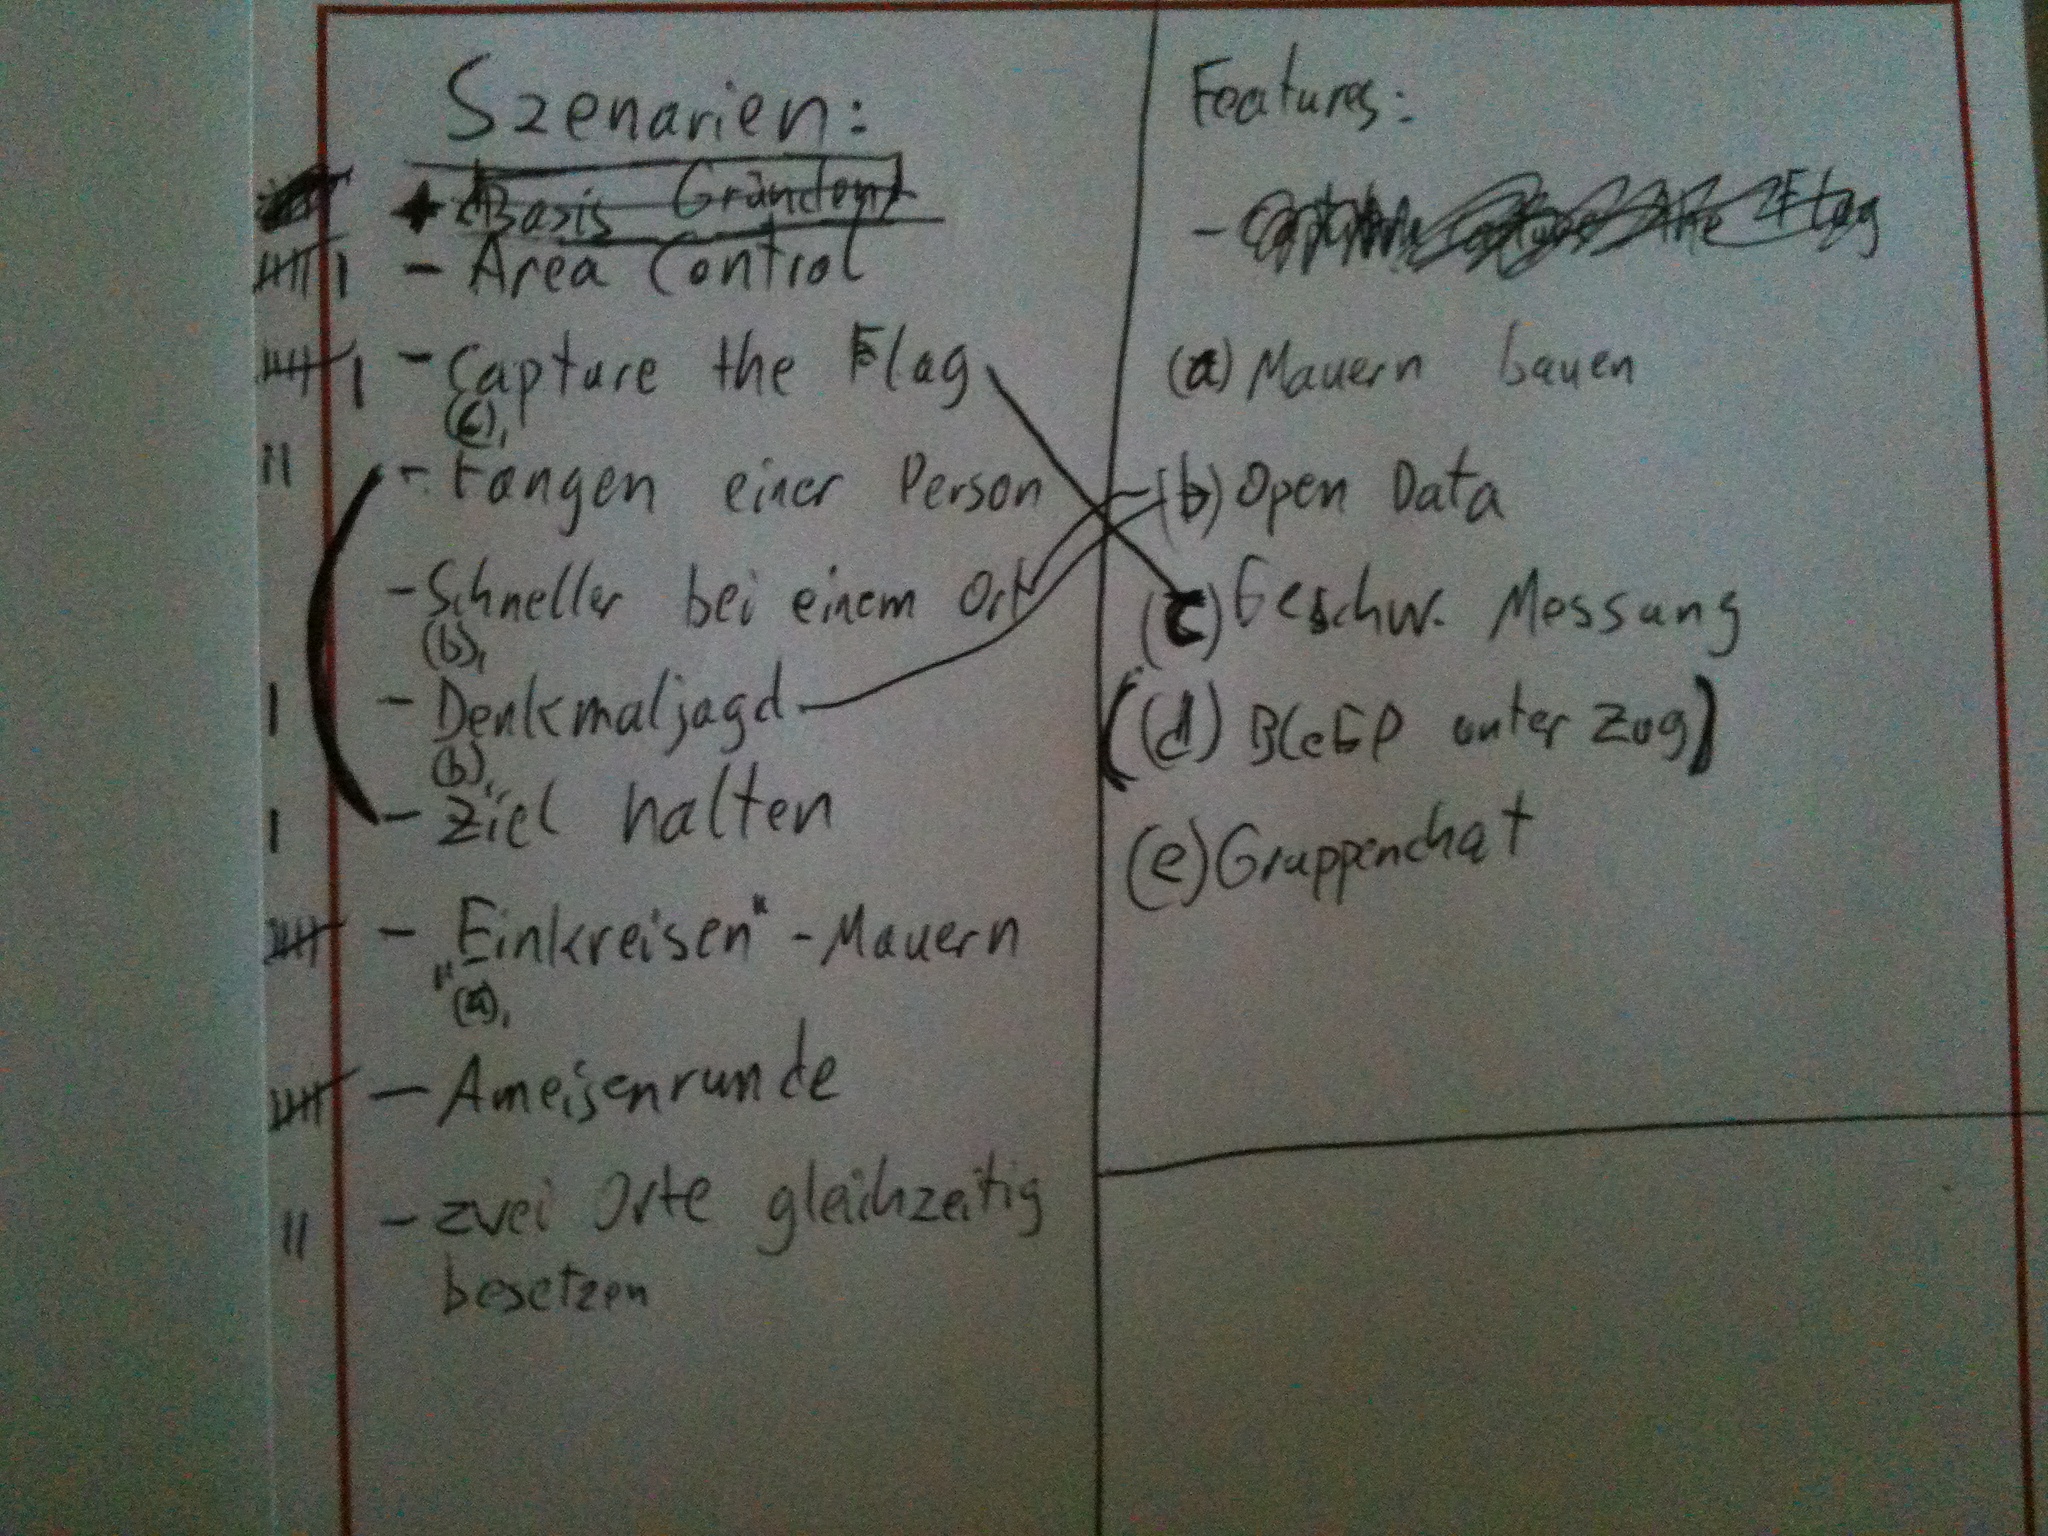 Szenarien:
Basis Gründen
- Area Control
- Capture the Flag
(c),
- Fangen einer Person
- Schneller bei einem Ort
(b),
- Denkmaljagd
(b),
- Ziel halten
- "Einkreisen" - Mauern
(a),
- Ameisenrunde
- zwei Orte gleichzeitig
besetzen
Features:
- Capture the Flag
(a) Mauern bauen
(b) Open Data
(c) Geschw. Messung
((d) unter Zug)
(e) Gruppenchat